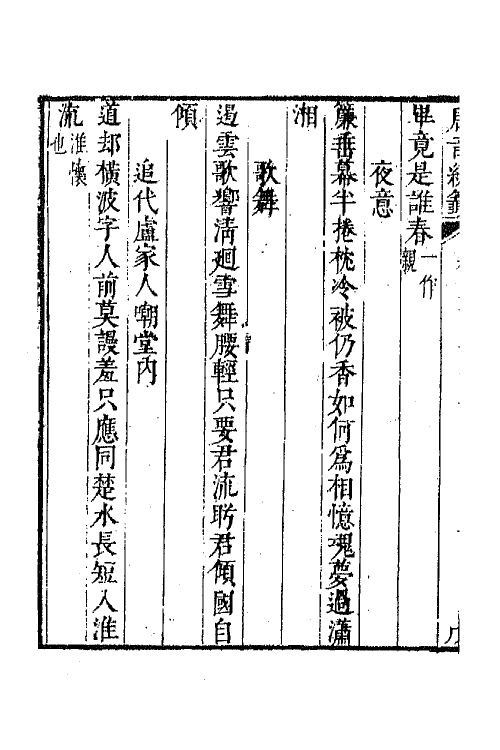 畢竟是誰春一作親
夜意
簾垂幕半捲枕冷被仍香如何爲相憶魂夢過瀟
湘
歌舞
遏雲歌響清迴雪舞腰輕只要君流眄君傾國自
傾
追代盧家人嘲堂內
道却橫波字人前莫謾羞只應同楚水長短入淮
流淮懷也